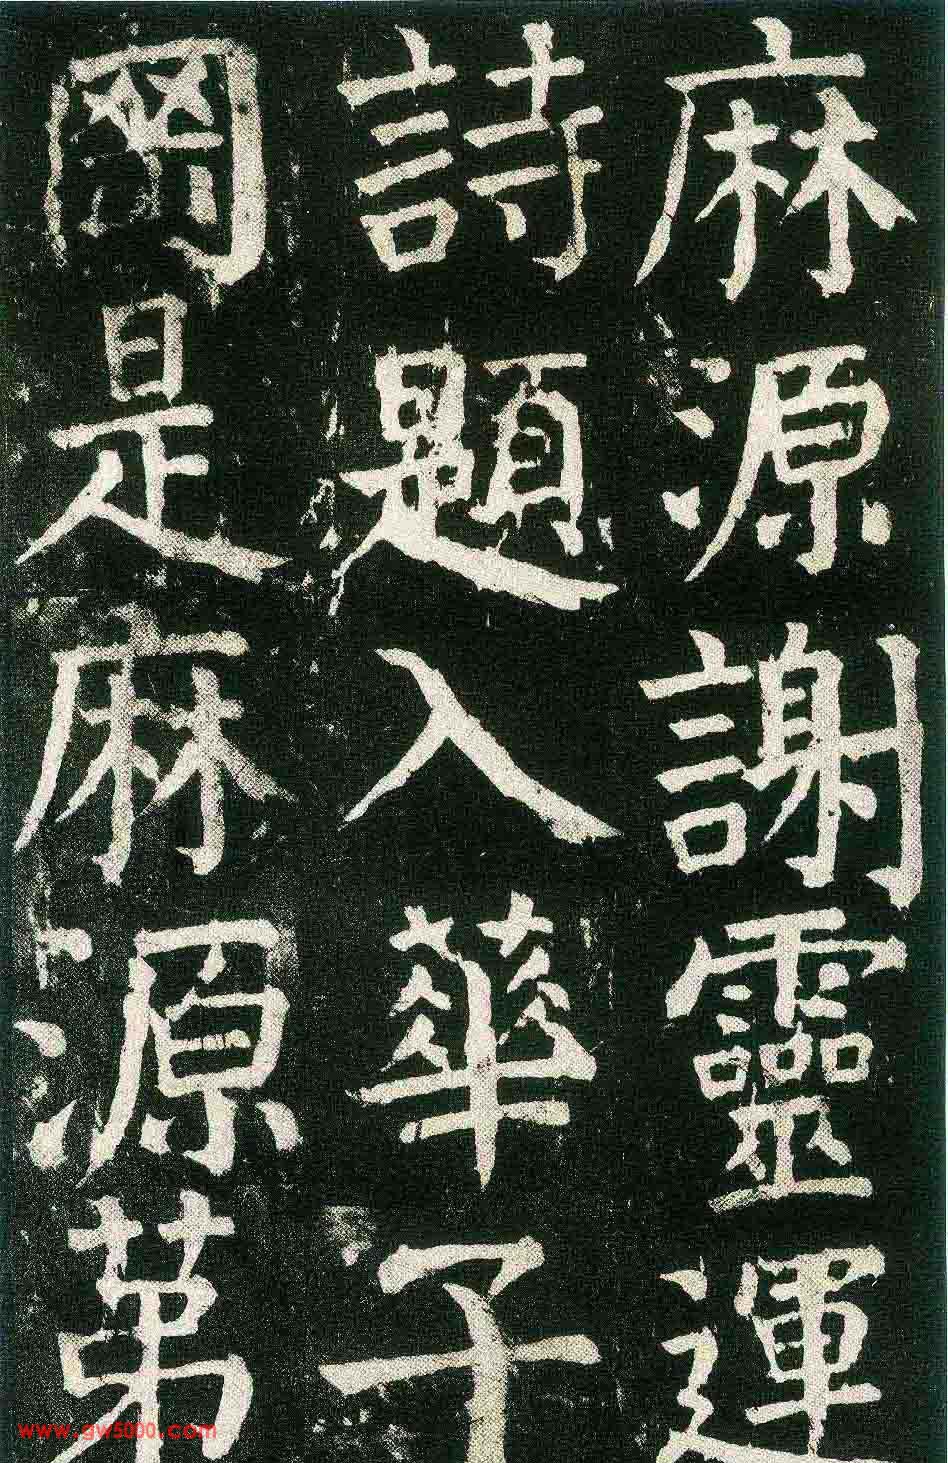 麻源謝靈運
詩題入華子
岡是麻源苐
www.gw5000.com